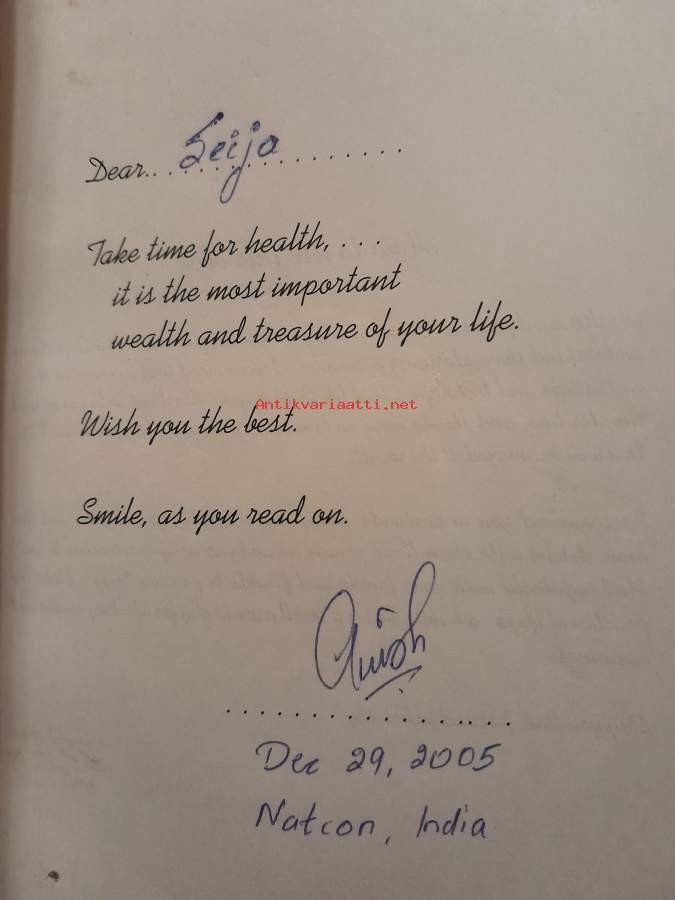 Dear.. Seija
Take time for health, . . .
it is the most important
wealth and treasure of your life.
Antikvariaatti.net
Wish you the best.
Smile, as you read on.
Dec 29, 2005
Natcon, India